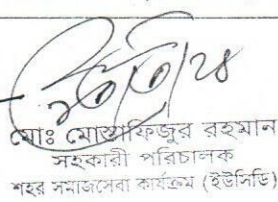 মোঃ মোস্তাফিজুর রহমান
সহকারী পরিচালক
শহর সমাজসেবা কার্যক্রম (ইউসিডি)